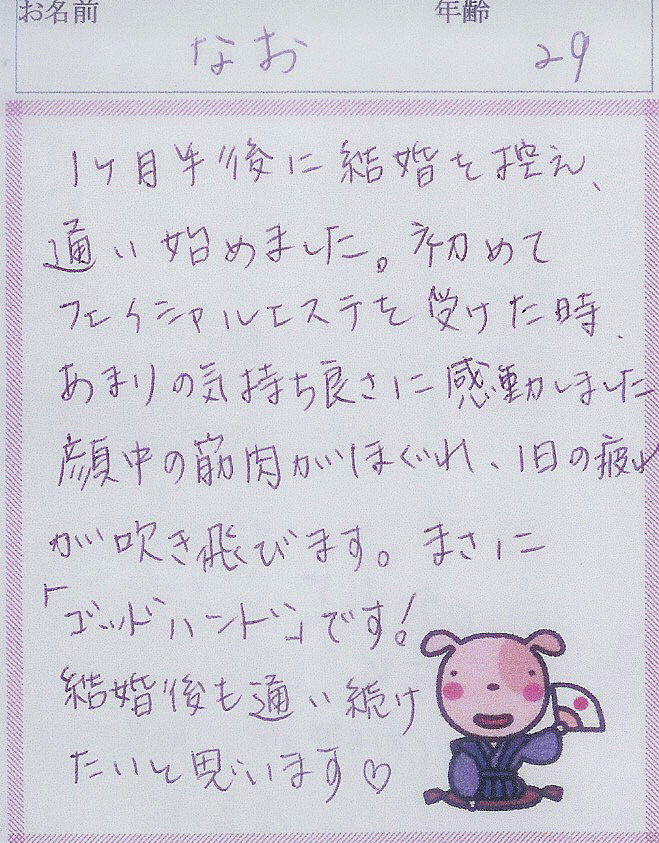 お名前 年齢
なお 29
1ヶ月半後に結婚を控え、
通い始めました。初めて
フェイシャルエステを受けた時、
あまりの気持ち良さに感動しました
顔中の筋肉がほぐれ、1日の疲れ
が吹き飛びます。まさに
「ゴッドハンド」です!
結婚後も通い続け
たいと思います♡